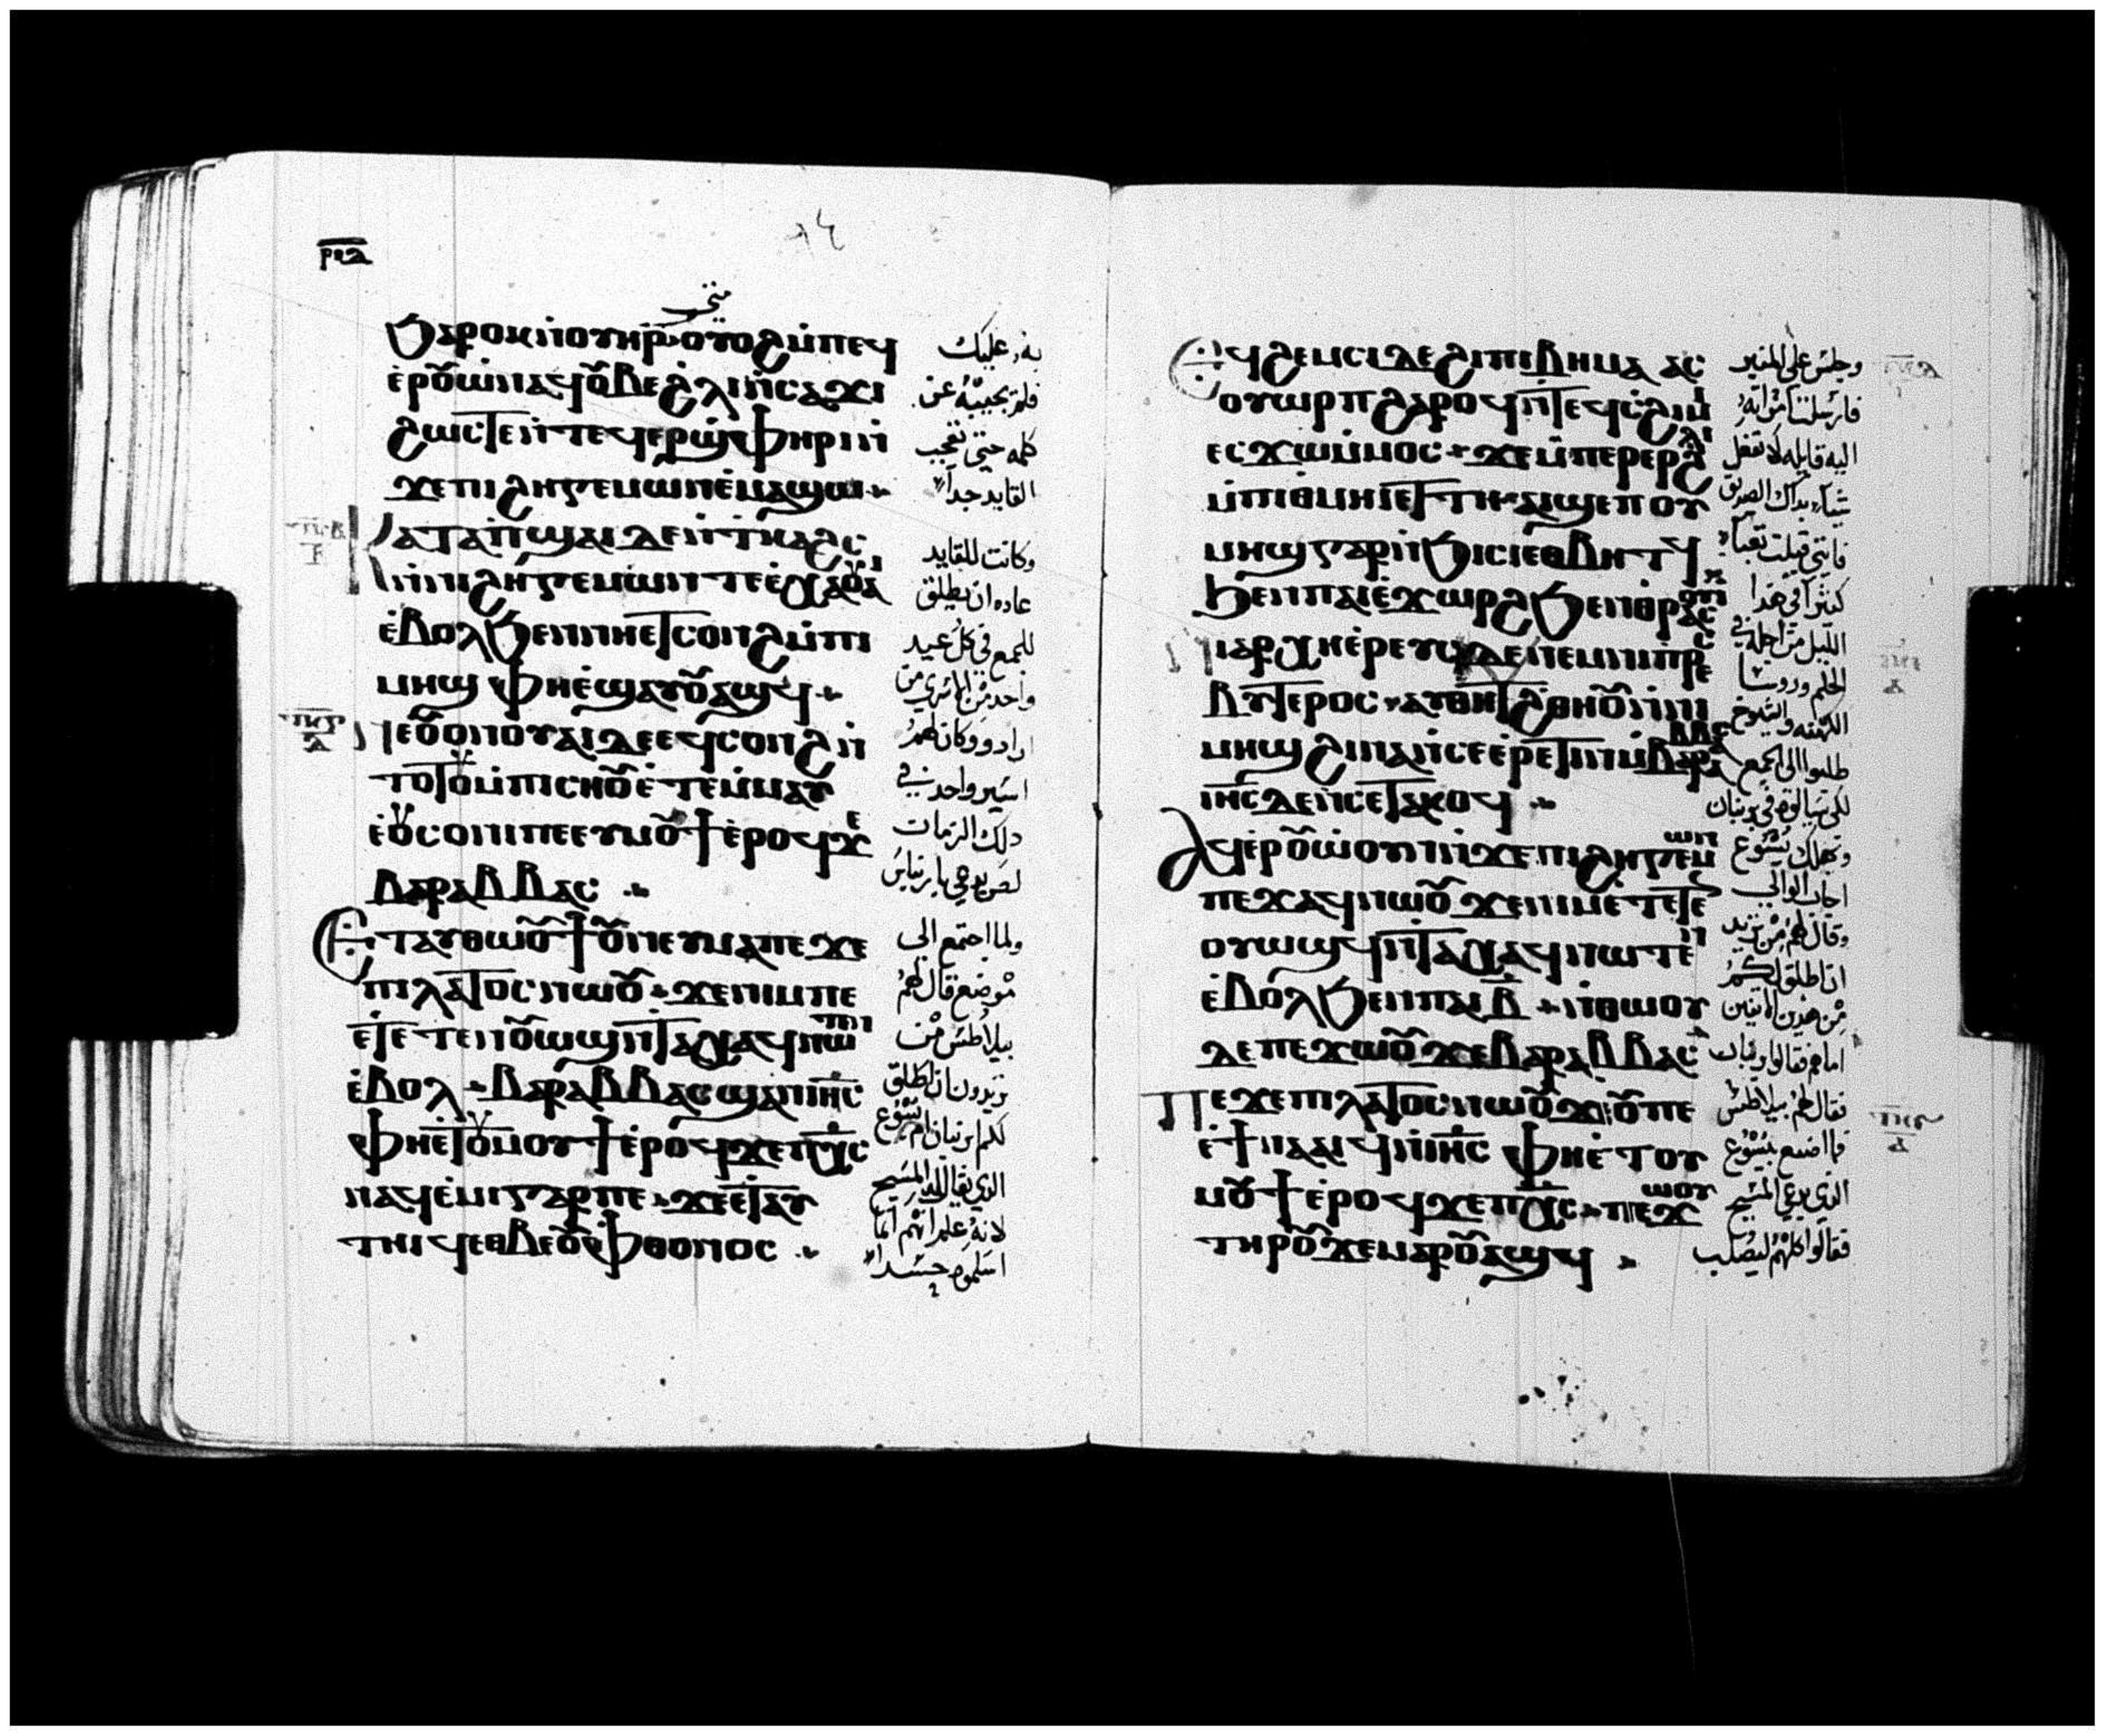 ⲣⲓⲇ
ϧⲁⲣⲟⲕ ⲛⲟⲩⲏⲣ ⲟⲩⲟϩ ⲙⲡⲉϥ
ⲉⲣⲟⲩⲱ ⲛⲁϥ ⲟⲩⲃⲉ ϩⲗⲓ ⲛⲥⲁϫⲓ
ϩⲱⲥⲧⲉ ⲛⲧⲉϥⲉⲣϣⲫⲏⲣⲓ ⲛ
ϫⲉ ⲡⲓϩⲏⲅⲉⲙⲱⲛ ⲉⲙⲁϣⲱ
ⲕⲁⲧⲁ ⲡϣⲁⲓ ⲇⲉ ⲛⲧⲕⲁϩⲥ
ⲙⲡⲓϩⲏⲅⲉⲙⲱⲛ ⲧⲉ ⲉⲭⲁ ⲟⲩⲁ
ⲉⲃⲟⲗ ϧⲉⲛ ⲛⲏⲉⲧⲥⲟⲛϩ ⲙⲡⲓ
ⲙⲏϣ ⲫⲏ ⲉϣⲁⲩⲟⲩⲁϣϥ
ⲛⲉ ⲟⲩⲟⲛ ⲟⲩⲁⲓ ⲇⲉ ⲉϥⲥⲟⲛϩ ⲛ
ⲧⲟⲧⲟⲩ ⲙⲡⲓⲥⲏⲟⲩ ⲉⲧⲉⲙⲙⲁⲩ
ⲉⲟⲩⲥⲟⲛⲓ ⲡⲉ ⲉⲩⲙⲟⲩϯ ⲉⲣⲟϥ ϫⲉ
ⲃⲁⲣⲁⲃⲃⲁⲥ
ⲉⲧⲁⲩⲑⲱⲟⲩϯ ⲟⲩⲛ ⲉⲩⲙⲁ ⲡⲉϫⲉ
ⲡⲓⲗⲁⲧⲟⲥ ⲛⲱⲟⲩ ϫⲉ ⲛⲓⲙ ⲡⲉ
ⲉⲧⲉⲧⲉⲛⲟⲩⲱϣ ⲛⲧⲁⲭⲁϥ ⲛⲱⲧⲉⲛ
ⲉⲃⲟⲗ ⲃⲁⲣⲁⲃⲃⲁⲥ ϣⲁⲛ ⲓⲏⲥ
ⲫⲏ ⲉⲧⲟⲩⲙⲟⲩϯ ⲉⲣⲟϥ ϫⲉ ⲡⲭⲥ
ⲛⲁϥⲉⲙⲓ ⲅⲁⲣ ⲡⲉ ϫⲉ ⲉⲧⲁⲩ
ⲧⲏⲓϥ ⲉⲑⲃⲉ ⲟⲩⲫⲑⲟⲛⲟⲥ
به عليك
فلم يجيبه عن
كلمه حتى تعجب
القايد جدا
وكانت للقايد
عاده ان يطلق
للجمع في كل عيد
واحد من الماسري من
ارادوو وكان لهم
اسير واحد في
دلك الزمات
لص يدعى بارنباس
ولما اجتمع الى
موضع قال لهم
بيلاطس من
تريدون ان اطلق
لكم ابرنبان ام يسوع
الذي يقال له المسيح
لانه علم انهم انما
اسلموه حسدا
ⲉϥϩⲉⲙⲥⲓ ⲇⲉ ϩⲓ ⲡⲓⲃⲏⲙⲁ ⲁⲥ
ⲟⲩⲱⲣⲡ ϩⲁⲣⲟϥ ⲛⲧⲉϥⲥϩⲓⲙⲓ
ⲉⲥϫⲱ ⲙⲙⲟⲥ ϫⲉ ⲙⲡⲉⲣⲉⲣ ϩⲗⲓ
ⲙⲡⲓⲑⲙⲏⲓ ⲉⲧⲧⲏ ⲁⲓϣⲉⲡ ⲟⲩ
ⲙⲏϣ ⲅⲁⲣ ⲛϧⲓⲥⲓ ⲉⲑⲃⲏⲧϥ
ϧⲉⲛ ⲡⲁⲓⲉϫⲱⲣϩ ϧⲉⲛ ⲑⲣⲁⲥⲟⲩⲓ
ⲛⲓⲁⲣⲭⲏⲉⲣⲉⲩⲥ ⲇⲉ ⲛⲉⲙ ⲛⲓⲡⲣⲉⲥ
ⲃⲩⲧⲉⲣⲟⲥ ⲁⲩⲑⲉⲧ ⲡϩⲏⲧ ⲛⲛⲓ
ⲙⲏϣ ϩⲓⲛⲁ ⲛⲥⲉⲉⲣⲉⲧⲓⲛ ⲙⲃⲁⲣⲁⲃⲃⲁⲥ
ⲓⲏⲥ ⲇⲉ ⲛⲥⲉⲧⲁⲕⲟϥ
ⲁϥⲉⲣⲟⲩⲱ ⲟⲩⲛ ⲛϫⲉ ⲡⲓϩⲏⲅⲉⲙⲱⲛ
ⲡⲉϫⲁϥ ⲛⲱⲟⲩ ϫⲉ ⲛⲓⲙ ⲉⲧⲉⲧⲉⲛ
ⲟⲩⲱϣϥ ⲛⲧⲁⲭⲁϥ ⲛⲱⲧⲉⲛ
ⲉⲃⲟⲗ ϧⲉⲛ ⲡⲁⲓ ⲃ ⲛⲑⲱⲟⲩ
ⲇⲉ ⲡⲉϫⲱⲟⲩ ϫⲉ ⲃⲁⲣⲁⲃⲃⲁⲥ
ⲡⲉϫⲉ ⲡⲓⲗⲁⲧⲟⲥ ⲛⲱⲟⲩ ϫⲉ ⲟⲩ ⲡⲉ
ⲉϯⲛⲁⲁⲓϥ ⲛⲓⲏⲥ ⲫⲏ ⲉⲧⲟⲩ
ⲙⲟⲩϯ ⲉⲣⲟϥ ϫⲉ ⲡⲭⲥ ⲡⲉϫⲱⲟⲩ
ⲧⲏⲣⲟⲩ ϫⲉ ⲙⲁⲣⲟⲩⲁϣϥ
وجلس على المنبر
فارسلت امراته
اليه قايله لا تفعل
شيا بداك الصديق
فانني قبلت تعبا
كثيرا في هدا
الليل من اجله في
الحلم وروسا
الكهنه والشيوخ
طلبوا الى الجمع
لكي يسالوه في برنبان
وتهلك يسوع
اجاب الوالي
وقال لهم من تريد
ان اطلق لكم
من هدين الاتنين
اما هم فقالوا برنبان
فقال لهم بيلاطس
فما اصنع بيسوع
الذي يدعى المسيح
فقالوا كلهم ليصلب